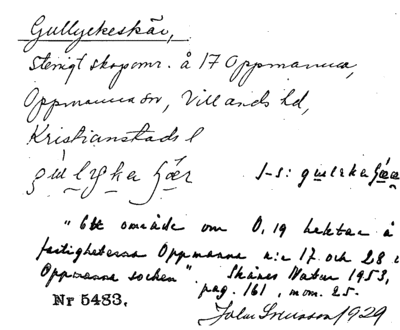 Gullyckeskär,
Stenigt skogsomr. å 17 Oppmanna,
Oppmanna sn, Villands hd,
Kristianstads l
J-S:
"Ett område om 0,19 hektar å
fastigheterna Oppmanna n:r 17 och 28 i
Oppmanna socken". Skånes Natur 1953,
pag. 161, mom. 25.
Nr 5483.
John Svensson 1929